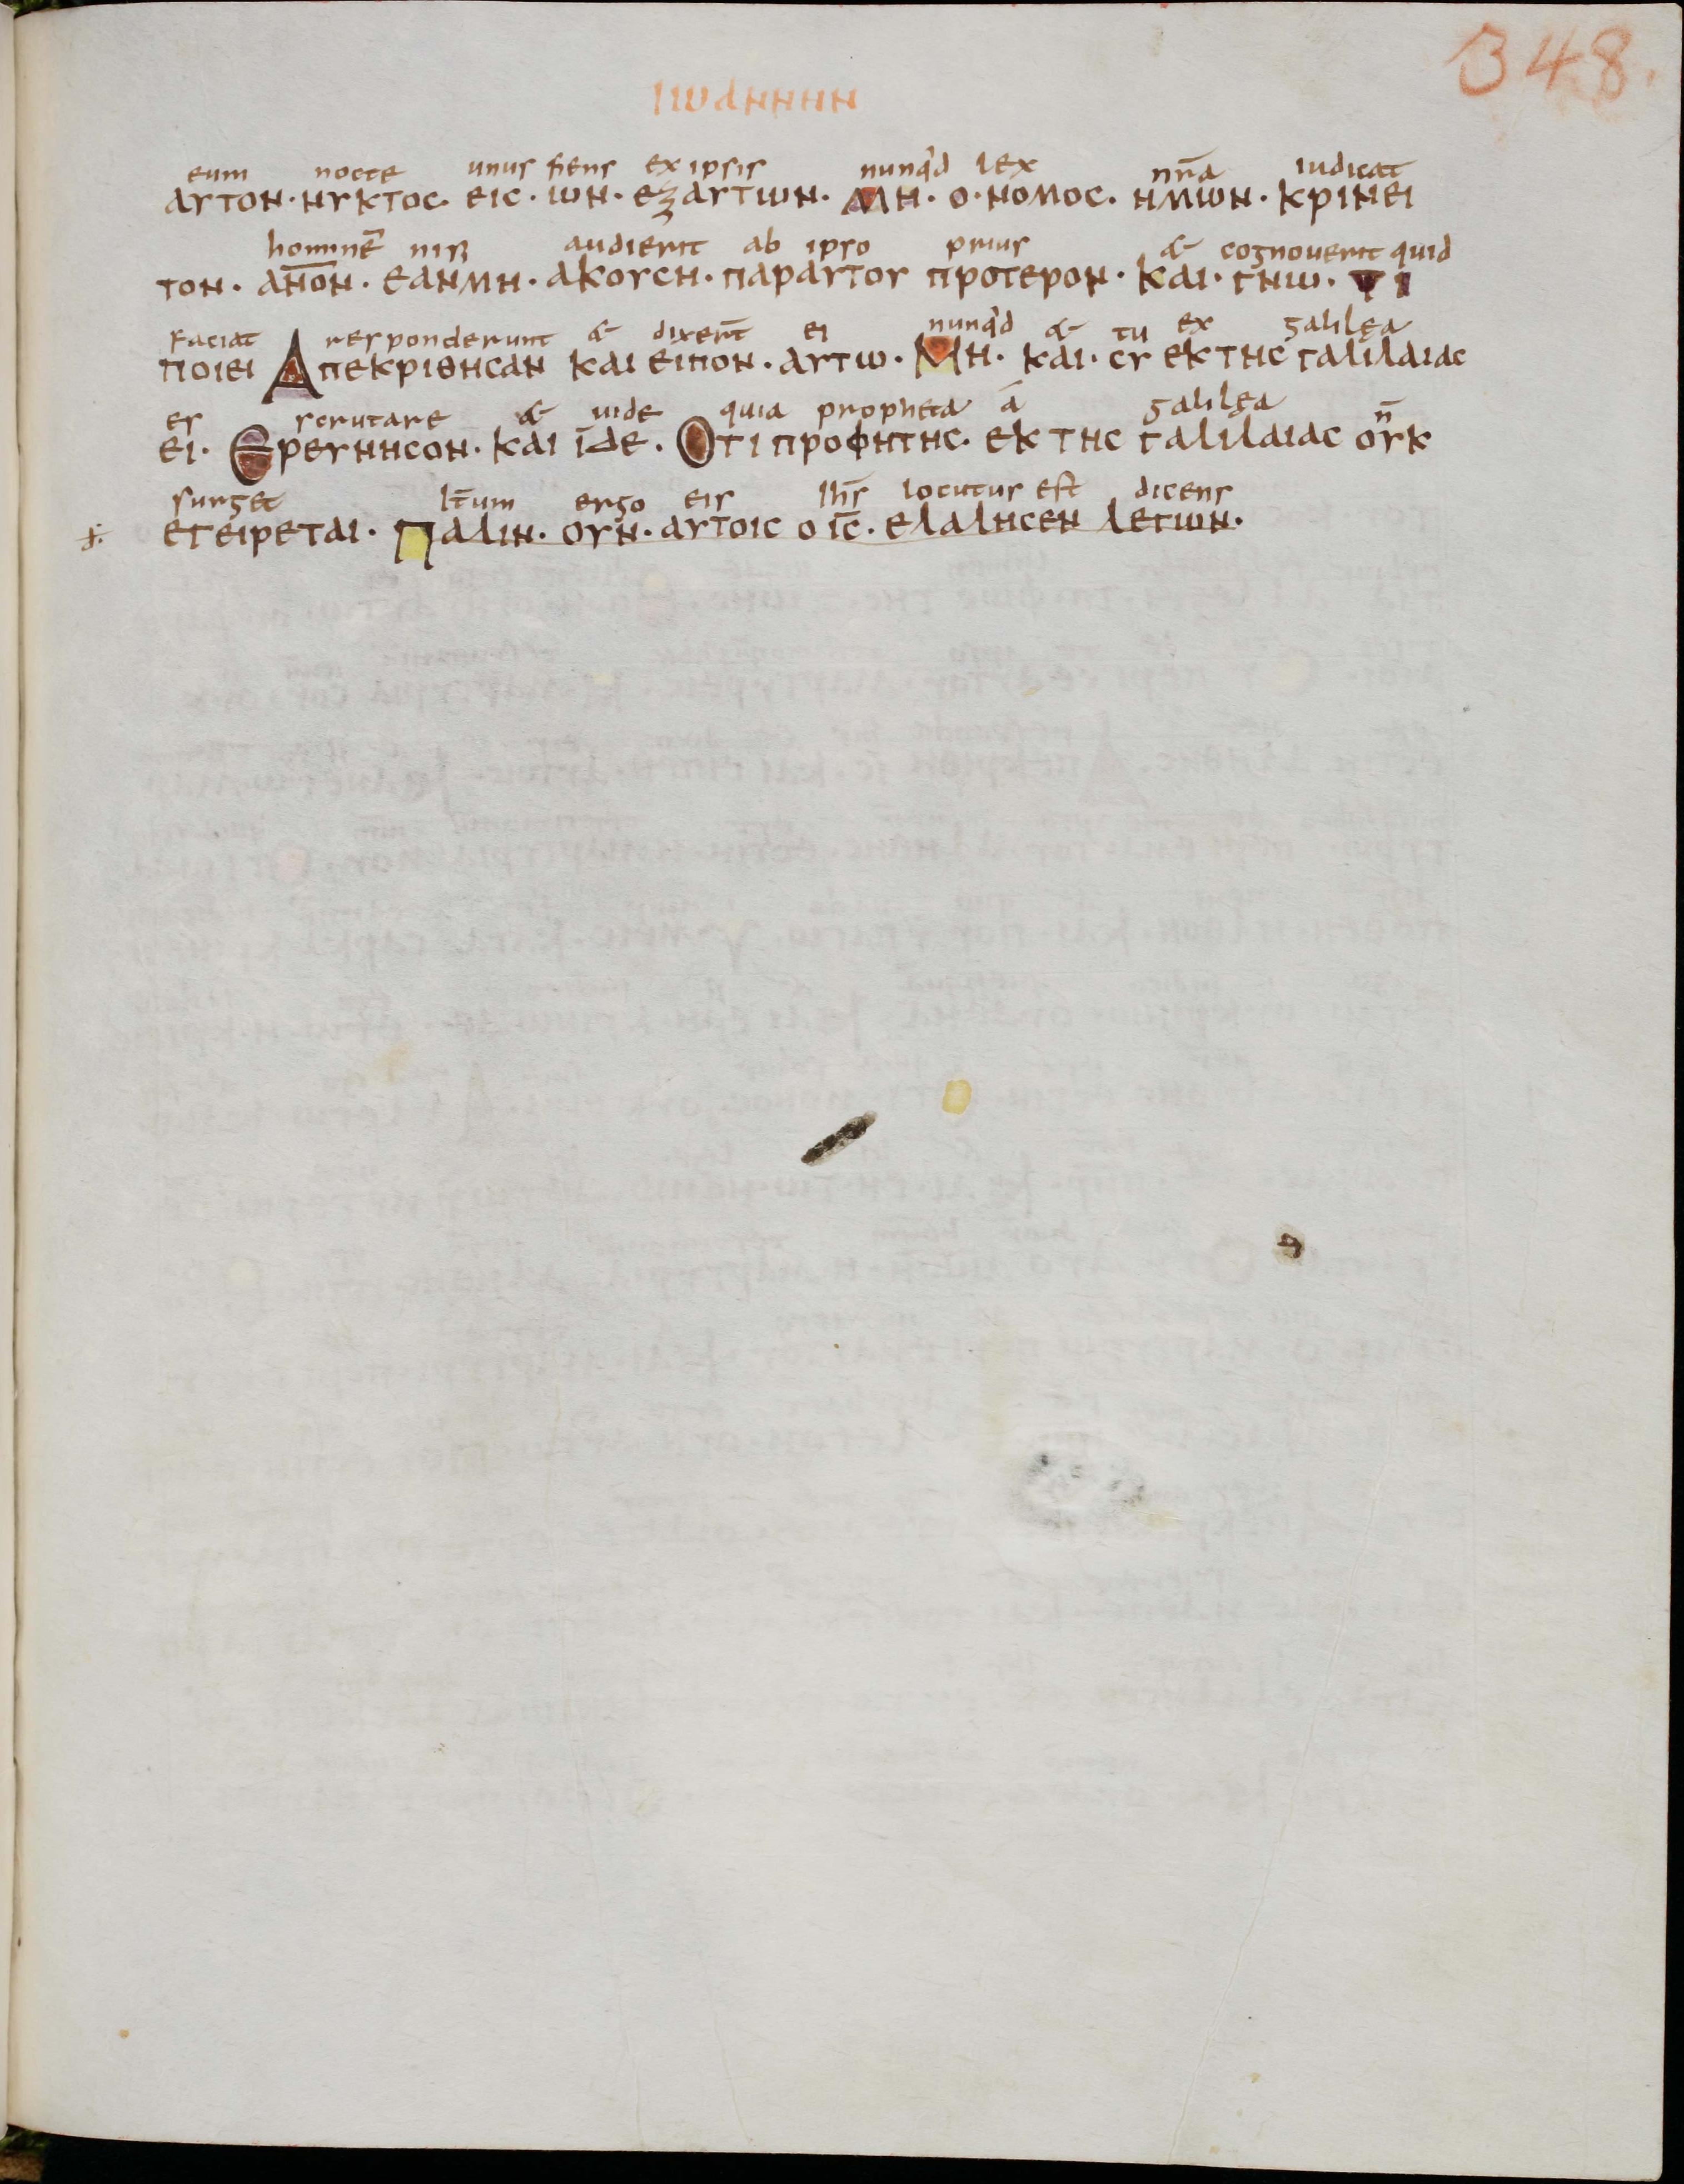 348.
ιωαηηηη
eum nocte unus fiens ex ipsis nunq'd lex nr̄a iudicat
αυτον · νυκτος · εις · ων · εξαυτων · Μη · ο · νομος · ημων · κρινει
hominē nisi audierit ab ipso prius & cognouerit quid
τον · αν̅ο̅ν · εανμη · ακουση · παραυτου προτερον · και · γνω · τι
faciat responderunt & dixer̄t ei nunq'd & tu ex galilęa
ποιει Απεκριθησαν και ειπον · αυτω · Μη · και · συ εκ της γαλιλαιας
es scrutare & uide quia propheta á galilęa n̄
ει · Ερευνησον · και ιδε · Οτι προφητης · εκ της γαλιλαιας ουκ
surget It̄um ergo eis ih̄s locutus est dicens
εγειρεται · Παλιν · ουν · αυτοις ο ι̅ς̅ · ελαλησεν λεγων ·